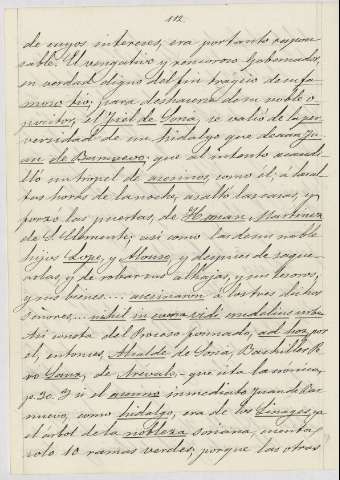 112.
de cuyos intereses, era portanto respon
sable. El vengativo y rencoroso Gobernador,
en verdad digno del fin trágico de su fa
moso tio; para deshacerse de su noble o
positor, el Fiel de Soria, se valió de la per
versidad de un hidalgo que decían Ju
an de Barnuevo; que al intento acaudi
lló un tropel de asesinos, como él; á las al
tas horas de la noche, asaltó las casas, y
forzó las puertas, de Hernan Martinez
de S. Clemente; asi como las de sus noble
hijos Lope, y Alonso y despues de saque
arlas, y de robar sus alhajas, y sus tesoros,
y sus bienes... asesinaron á los tres dichos
señores... 
Asi consta del Proceso formado, ad hoc, por
el, entonces, Alcalde de Soria, Bachiller P.
ro Sanz, de Arevalo; que cita la cronica,
p. 20. Y si el asesino inmediato Juan de Bar
nuevo, como hidalgo, era de los Linages, ya
el árbol de la nobleza soriana, cuenta
solo 10 ramas verdes; porque las otras